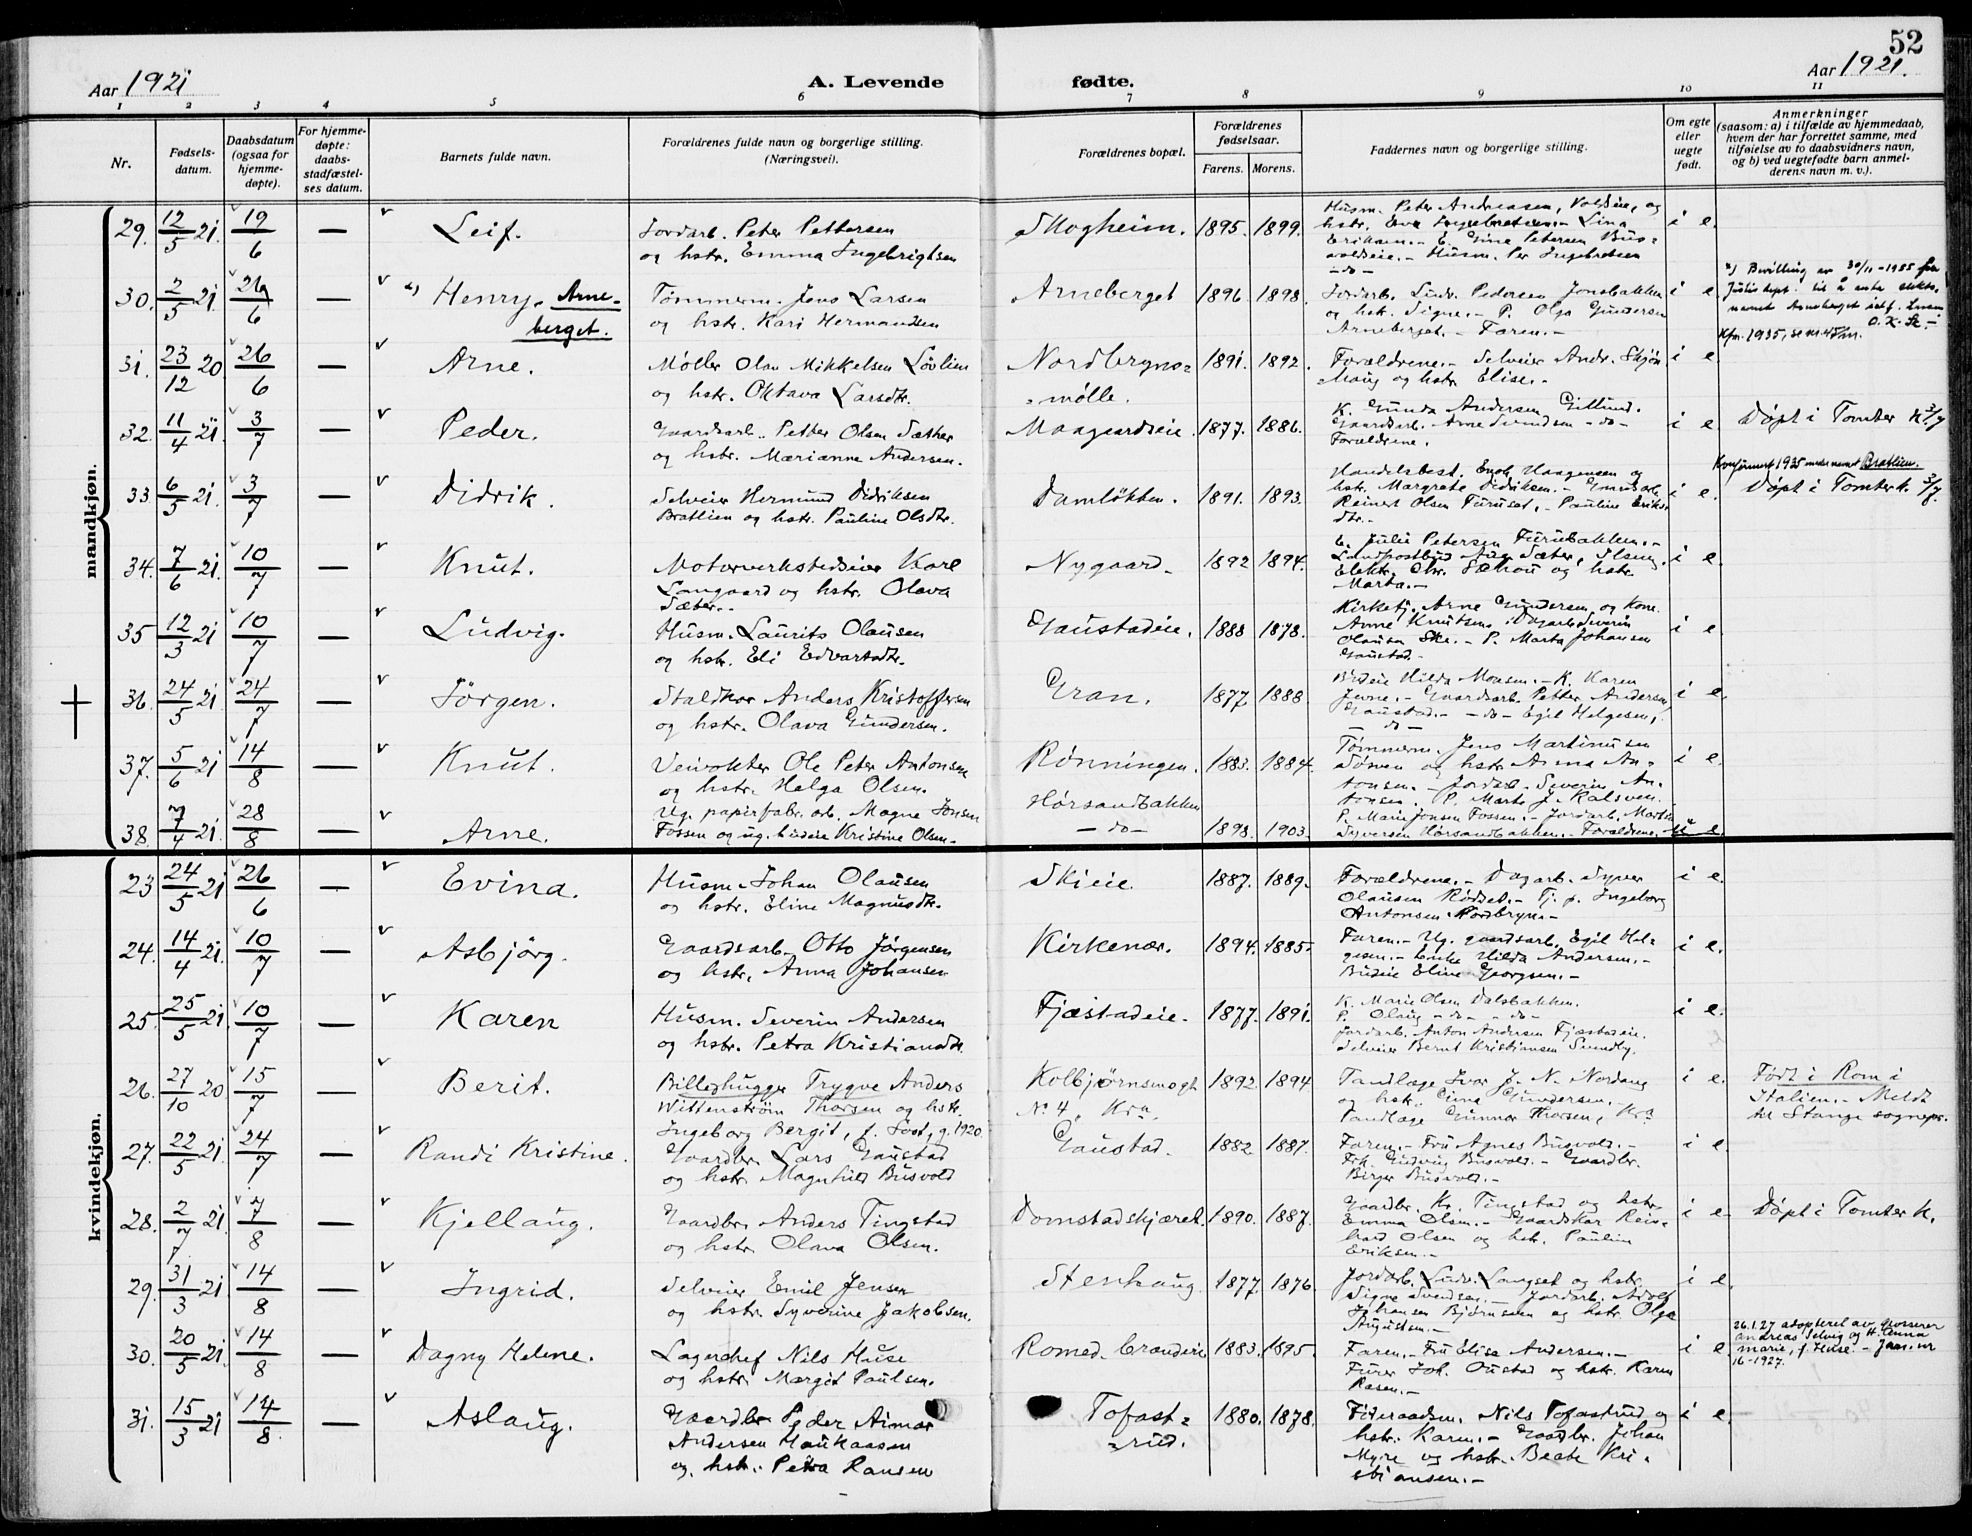 52
Aar 1921
A. Levende
fødte.
Aar 1921.
1 2 3 4 5 6 7 8 9 10 11
Nr.
Fødsels-
datum.
Daabsdatum
(ogsaa for
hjemme-
døpte).
For hjemme-
døpte:
daabs-
stadfæstel-
ses datum.
Barnets fulde navn.
Forældrenes fulde navn og borgerlige stilling.
(Næringsvei).
Forældrenes bopæl.
Forældrenes
fødselsaar.
Farens. Morens.
Faddernes navn og borgerlige stilling.
Om egte
eller
uegte
født.
Anmerkninger
(saasom: a) i tilfælde av hjemmedaab,
hvem der har forrettet samme, med
tilføielse av to daabsvidners navn,
og b) ved uegtefødte barn anmel-
derens navn m. v.).
mandkjøn.
29. 12/5 21. 19/6 — Leif.
Jordarb. Peter Pettersen
og hstr. Emma Ingebrigtsen
Skogheim. 1895. 1899.
Husm. Peter Andreasen, Voldeie, og
hstr. Eva Ingebretsen.- Lina
Eriksen.- E. Gine Petersen Bus-
voldeie.- Husm. Per Ingebretsen
-do-
i e.
30. 2/5 21. 26/6 — Henry. Arne-
berget.
Tømmerm. Jens Larsen
og hstr. Kari Hermandsen
Arneberget 1896. 1898.
Jordarb. Ludv. Pedersen Jonsbakken
og hstr. Signe.- P. Olga Gundersen
Arneberget.- Faren.-
i e.
Bevilling av 30/11-1935 fra
Justisdept. til å anta slekts-
navnet Arneberget
31. 23/12 20 26/6 — Arne.
Møller Olav Mikkelsen Løvlien
og hstr. Oktava Larsdtr.
Nordbryns-
mølle.
1891. 1892.
Forældrene.- Selveier Andr. Skjøn-
haug og hstr. Elise.-
i e.
32. 11/4 21. 3/7 — Peder.
Gaardsarb. Petter Olsen Sæther
og hstr. Marianne Andersen.
Maagaardseie. 1877. 1886.
K. Gunda Andersen Gillund.
Gaardsarb. Arne Svendsen -do-
Forældrene.
i e.
Døpt i Tomter k. 3/7
33 6/5 21. 3/7 — Didrik.
Selveier Hermund Didriksen
Bratlien og hstr. Pauline Olsdtr.
Damløkken. 1891. 1893.
Handelsbest. Enok Haagensen og
hstr. Margrete Didriksen.-
Reinert Olsen Furuset.- Pauline Eriks-
dtr.-
i e.
Konfirmert 1935 med navnet Bratlien.
Døpt i Tomter k. 3/7.
34. 7/6 21. 10/7 — Knut.
Motorverkstedeier Karl
Langaard og hstr. Olava
Sæter.-
Nygaard. 1892 1894.
E. Julie Petersen Furubakken.-
Landpostbud Aug. Sæter,
Elektr. Chr. Sæthou og hstr.
Marta.-
i e.
35 12/3 21 10/7 — Ludvig.
Husm. Laurits Olausen
og hstr. Eli Edvartsdtr.
Gaustadeie. 1888 1878.
Kirketj. Arne Gundersen og kone
Anne Knutsen. Dagarb. Severin
Olausen Skie.- P. Marta Johansen
Gaustad.-
i e.
36. 24/5 21. 24/7 — Jörgen.
Staldkar Anders Kristoffersen
og hstr. Olava Gundersen.
Gran. 1877. 1888.
Budeie Hilda Monsen.- K. Karen
Gaardsarb. Petter Andersen,
Gaustad.- -do- Egil Helgesen,
-do-
i e.
37. 5/6 21 14/8 — Knut.
Veivokter Ole Peter Antonsen
og hstr. Helga Olsen.
Rönningen. 1883. 1884.
Tømmerm. Jens Martinusen
og hstr. Anna An-
tonsen.- Jordarb. Severin An-
tonsen. P. Marta J. Kalsveen.
i e.
38. 7/4 21. 28/8 — Arne.
Ug. papirfabr. arb. Magne Jonsen
Fossen og ug. budeie Kristine Olsen.
Hørsandbakken
-do-
1898. 1903.
P. Marie Jonsen Fossen.- Jordarb. Martin
Syversen Hørsandbakken.- Forældrene.
u e.
kvindekjøn.
23 24/5 21 26/6 — Evina.
Husm. Johan Olausen
og hstr. Eline Magnusdtr.
Skieie. 1887. 1889.
Forældrene.- Dagarb. Syver
Olausen Rødset.- Tj. p. Ingeborg
Antonsen Nordbryn.-
i e.
24. 14/4 21. 10/7 — Asbjörg.
Gaardsarb. Otto Jørgensen
og hstr. Anna Johansen
Kirkenær. 1894. 1885.
Faren.- Ug. gaardsarb. Egil Hel-
gesen.- Enke Hilda Andersen.-
Budeie Eline Georgsen.-
i e.
25. 25/5 21. 10/7 — Karen
Husm. Severin Andersen
og hstr. Petra Kristiansdtr.
Fjæstadeie. 1877. 1891.
K. Marie Olsen Dalsbakken.
P. Olaug -do- -do-
Jordarb. Anton Andersen Fjæstadeie.
Selveier Bernt Kristiansen Sundby.
i e.
26. 27/10 20 15/7 — Berit.
Billedhugger Trygve Anders
Wittenström Thorsen og hstr.
Ingeborg Bergit, f. Sost, g. 1920.
Kolbjørnsensgt.
No 4, Kra.
1892. 1894
Tandlæge Ivar J. N. Nordang
og hstr. Gundersen.
Tandlæge Gunnar Thorsen, Kra
i e.
Født i Rom i
Italien.- Meldt
til Stange sognepr.
27. 22/5 21. 24/7 — Randi Kristine.
Gaardbr. Lars Gaustad
og hstr. Magnhild Busvold
Gaustad. 1882. 1887.
Faren.- Fru Agnes Busvold.-
Frk. Gudvig Busvold.- Gaardbr.
Birger Busvold.-
i e.
28. 2/7 21. 7/8 — Kjellaug.
Gaardbr. Anders Tingstad
og hstr. Olava Olsen.
Domstadskjæret. 1890. 1887.
Gaardbr. Kr. Tingstad og hstr.
Emma Olsen.- Gaardskar Rein-
hard Olsen og hstr. Pauline
Eriksen.-
i e.
Døpt i Tomter k.
29. 31/3 21. 14/8 — Ingrid.
Selveier Emil Jensen
og hstr. Syverine Jakobsen.
Stenhaug. 1877. 1876.
Jordarb. Ludv. Langset og hstr.
Signe Svendsen.- Jordarb. Adolf
Johansen Bjørnsen og hstr. Olga
Augustsen.-
i e.
30. 20/5 21. 14/8 — Dagny Helene.
Lagerchef Nils Huse
og hstr. Margit Paulsen.
Romed. 1883. 1895.
Faren.- Fru Elise Andersen.-
Furer Joh. Oustad og hstr. Karen
Rasen.-
i e.
26.1.27 adopteret av grosserer
Andreas Selvig og H. Anna
Marie, f. Huse - Jan. nr
16-1927.
31. 15/3 21 14/8. — Aslaug.
Gaardbr. Peder Aimar
Andersen Haukaasen
og hstr. Petra Hansen
Tofast-
rud.
1880. 1878.
Føderaadsm. Nils Tofastrud og
hstr. Karen.- Gaardbr. Johan
Myre og hstr. Beate Kri-
stiansen.-
i e.